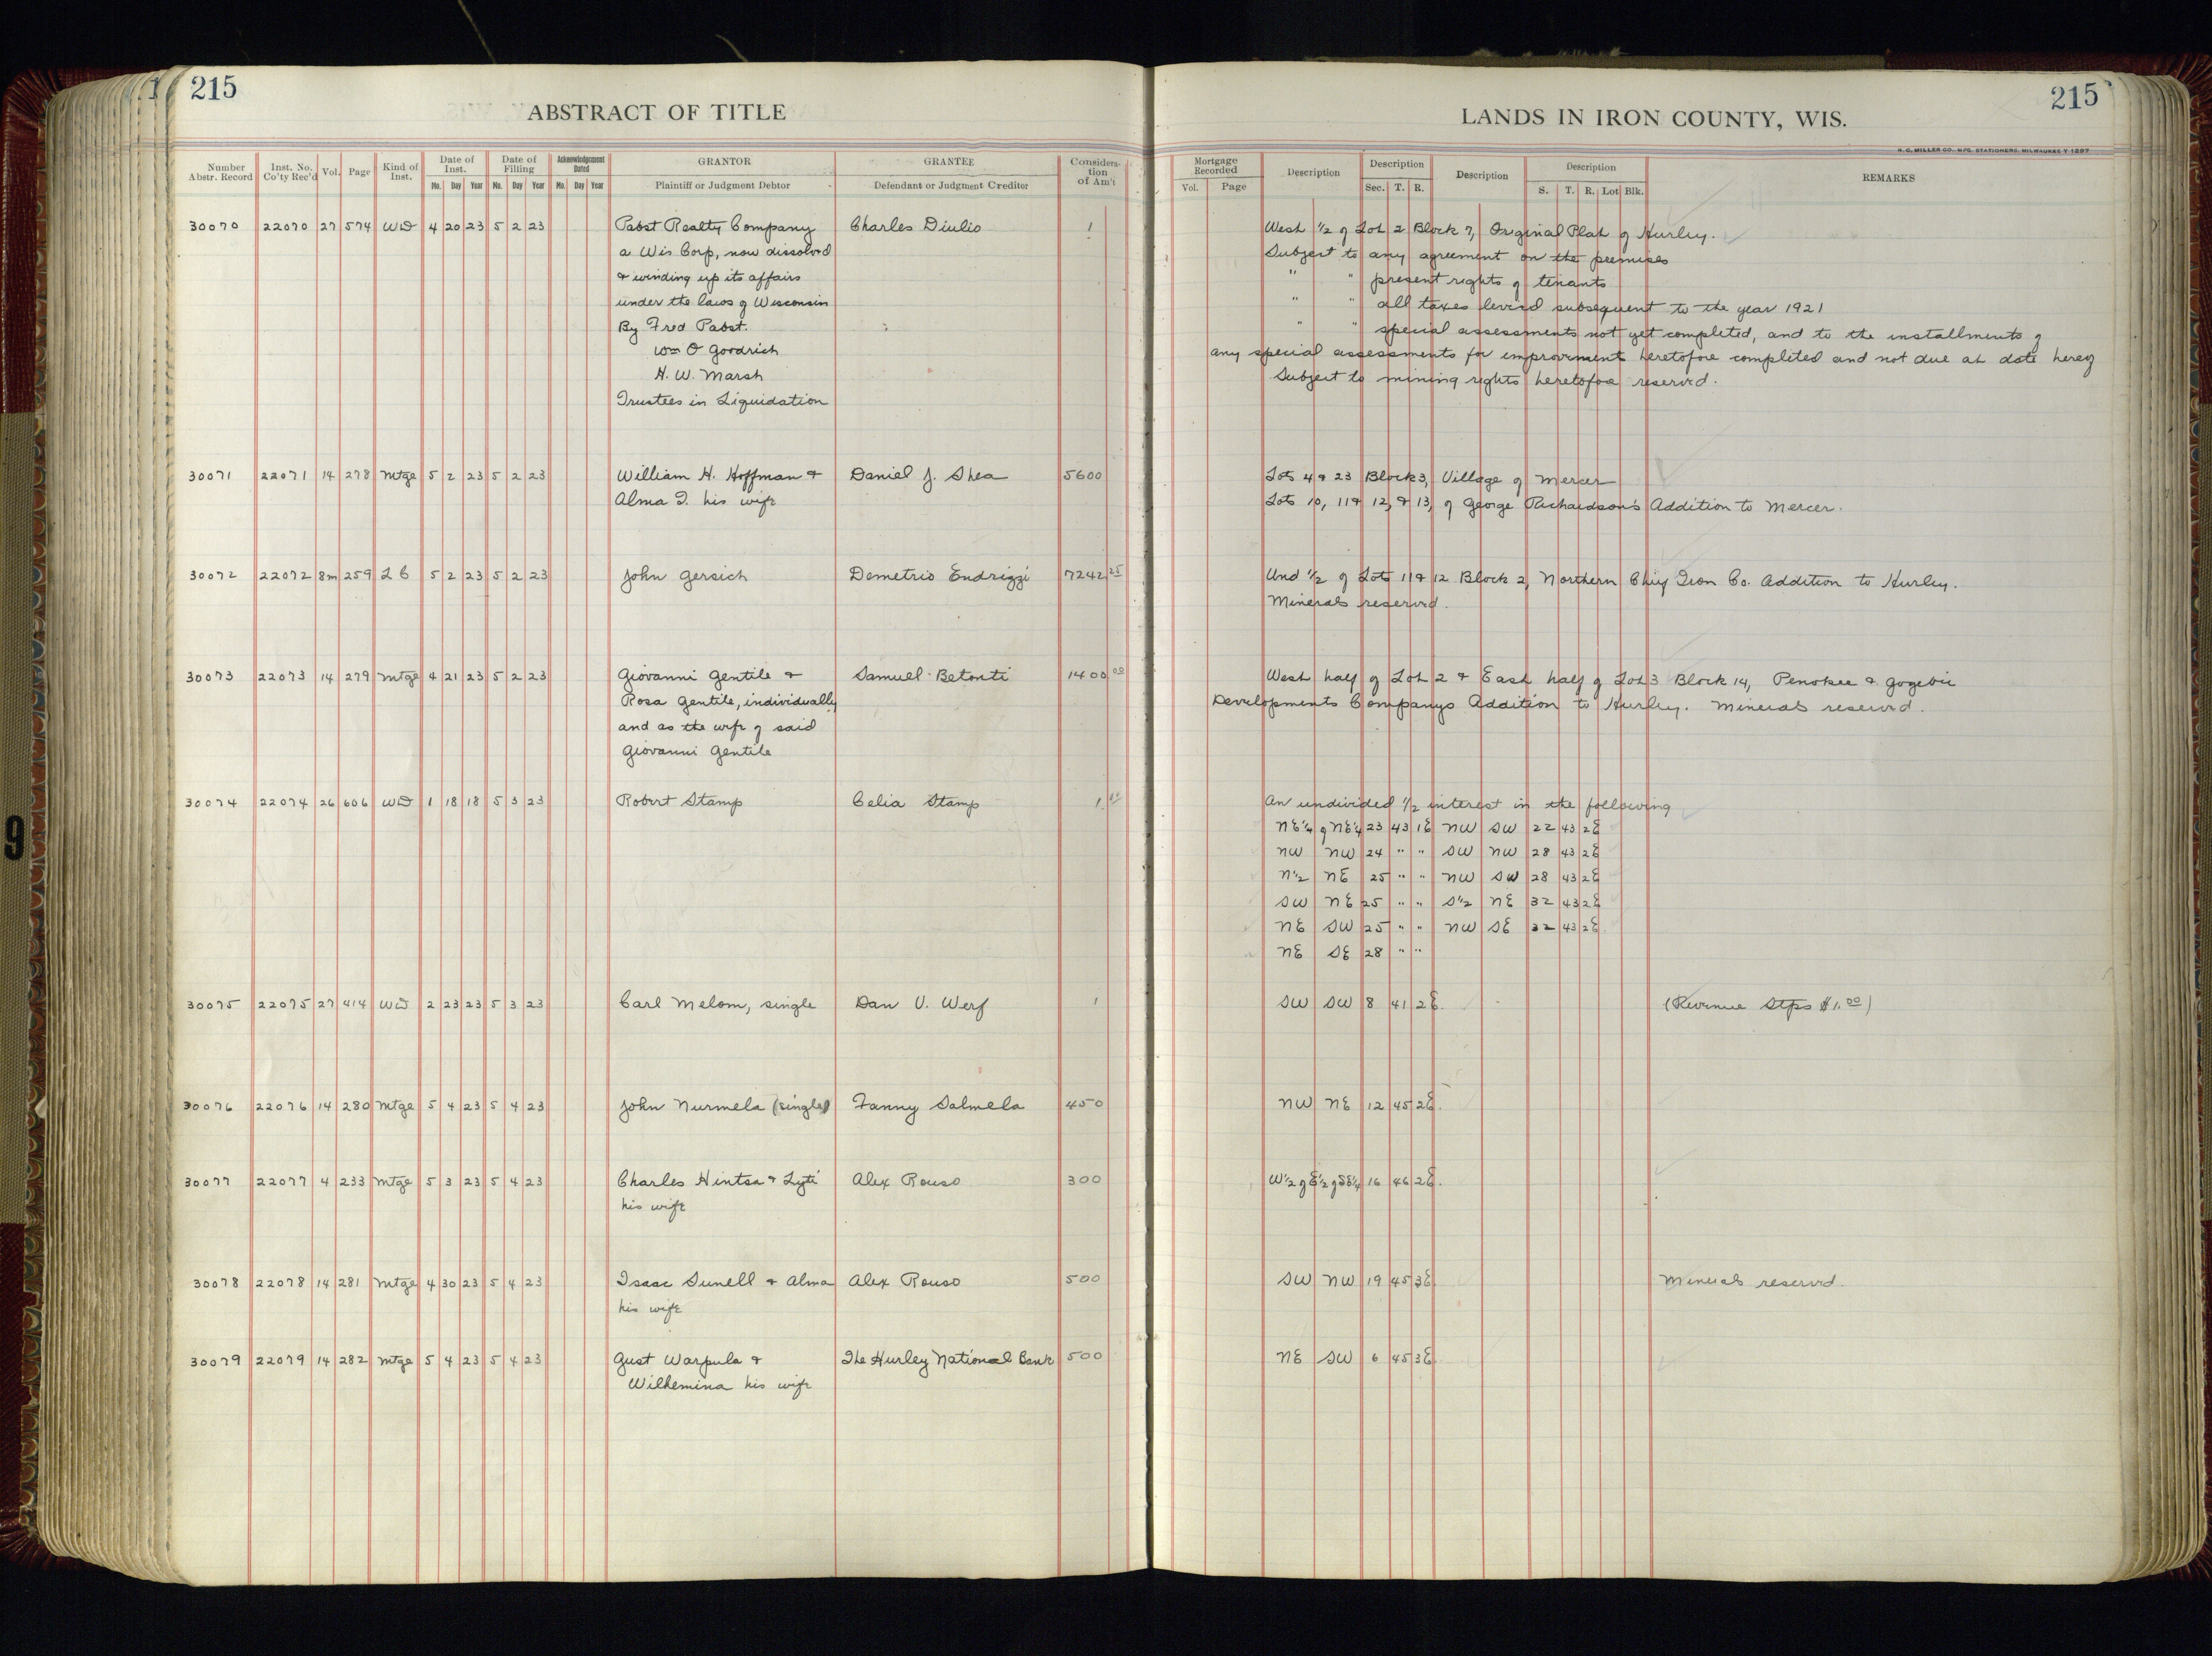 215
ABSTRACT OF TITLE
Number Abstr. Record Inst. No. Co'ty Rec'd Vol. Page Kind of Inst. Date of Inst. Mo. Day Year Date of Filling Mo. Day Year Acknowledgement Dated Mo. Day Year GRANTOR Plaintiff or Judgment Debtor GRANTEE Defendant or Judgment Creditor Consideration of Am't
30070 22070 27 574 WD 4 20 23 5 2 23 Pabst Realty Company Charles Diulio 1
a Wis Corp, now dissolved
& winding up its affairs
under the laws of Wisconsin
By Fred Pabst.
Wm O Goodrich
H. W. Marsh
Trustees in Liquidation
30071 22071 14 278 Mtge 5 2 23 5 2 23 William H. Hoffman & Daniel J. Shea 5600
Alma I. his wife
30072 22072 8m 259 L C 5 2 23 5 2 23 John Gersich Demetrio Endrizzi 7242 25
30073 22073 14 279 Mtge 4 21 23 5 2 23 Giovanni Gentile & Samuel Betonti 1400 00
Rosa Gentile, individually
and as the wife of said
Giovanni Gentile
30074 22074 26 606 WD 1 18 18 5 3 23 Robert Stamp Celia Stamp 1
30075 22075 27 414 WD 2 23 23 5 3 23 Carl Melom, single Dan V. Werf 1
30076 22076 14 280 Mtge 5 4 23 5 4 23 John Nurmela (single) Fanny Salmela 450
30077 22077 4 233 Mtge 5 3 23 5 4 23 Charles Hintsa & Lyti Alex Rouso 300
his wife
30078 22078 14 281 Mtge 4 30 23 5 4 23 Isaac Sunell & Alma Alex Rouso 500
his wife
30079 22079 14 282 Mtge 5 4 23 5 4 23 Gust Warpula & The Hurley National Bank 500
Wilhemina his wife
215
LANDS IN IRON COUNTY, WIS.
H. C. MILLER CO., MFG. STATIONERS, MILWAUKEE Y 1297
Mortgage Recorded Vol. Page Description Description Sec. T. R. Description Description S. T. R. Lot Blk. REMARKS
West 1/2 of Lot 2 Block 7, Orginal Plat of Hurley.
Subject to any agreement on the premises
" " present rights of tenants
" " all taxes levied subsequent to the year 1921
" " special assessments not yet completed, and to the installments of
any special assessments for improvements heretofore completed and not due at date hereof
Subject to mining rights heretofore reserved.
Lots 4 & 23 Block 3, Village of Mercer
Lots 10, 11 & 12, & 13, of George Richardson's Addition to Mercer.
Und 1/2 of Lots 11 & 12 Block 2, Northern Chief Iron Co. Addition to Hurley.
Minerals reserved.
West half of Lot 2 & East half of Lot 3 Block 14, Penokee & Gogebic
Developments Companys Addition to Hurley. Minerals reserved.
An undivided 1/2 interest in the following
NE 1/4 of NE 1/4 23 43 1E NW SW 22 43 2E
NW NW 24 " " SW NW 28 43 2E
N 1/2 NE 25 " " NW SW 28 43 2E
SW NE 25 " " S 1/2 NE 32 43 2E
NE SW 25 " " NW SE 32 43 2E
NE SE 28 " "
SW SW 8 41 2E. (Revenue Stps $1.00)
NW NE 12 45 2E.
W 1/2 of E 1/2 of SE 1/4 16 46 2E.
SW NW 19 45 3E. Minerals reserved.
NE SW 6 45 3E
9